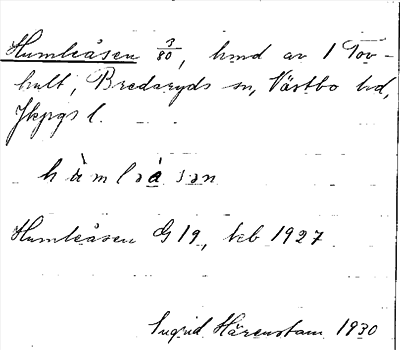 Humleåsen 3/80, hmd av 1 Tov-
hult, Bredaryds sn, Västbo hd,
Jkpgs l.
hùmləåsən
Humleåsen G 19, keb 1927
Ingrid Härenstam 1930